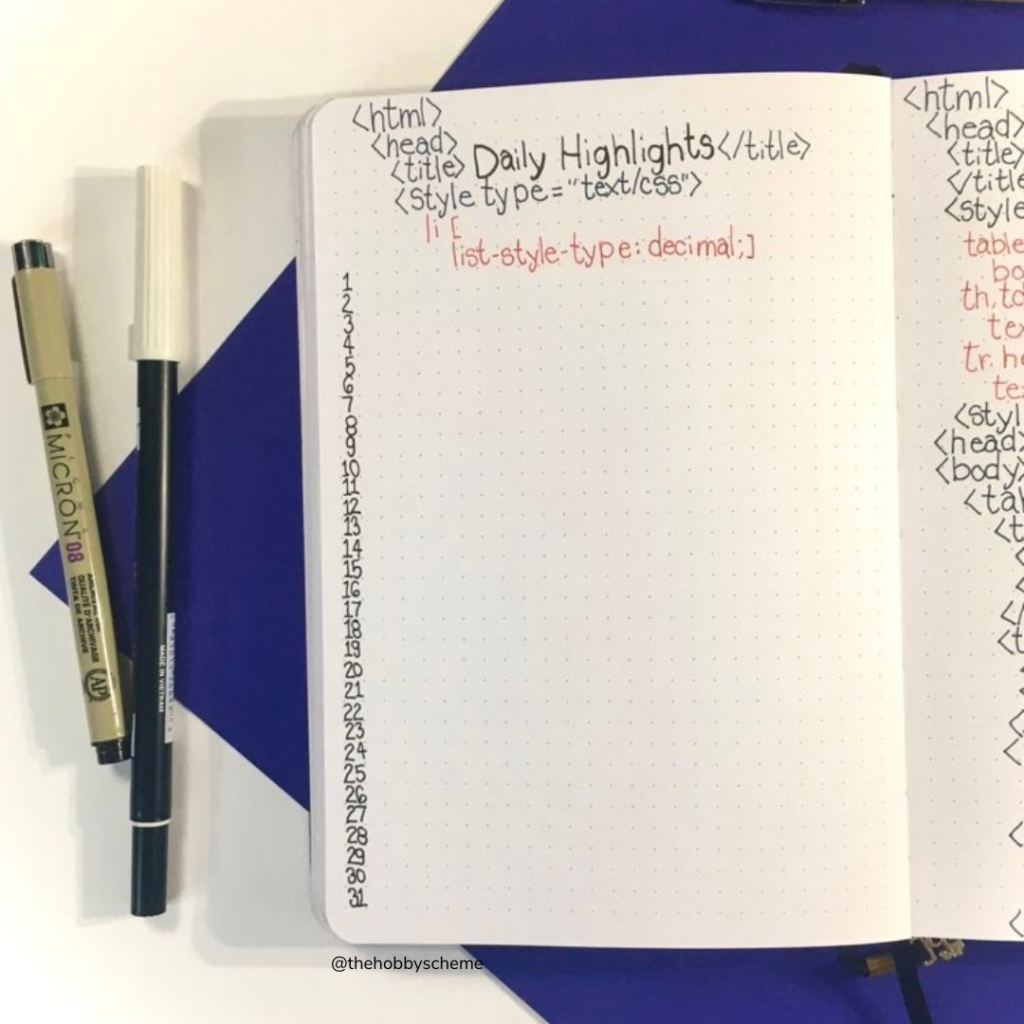 <html>
<head>
<title> Daily Highlights</title>
<style type="text/css">
li [
list-style-type: decimal;]
1
2
3
4
5
6
7
8
9
10
11
12
13
14
15
16
17
18
19
20
21
22
23
24
25
26
27
28
29
30
31
<html>
<head>
<title>
</title
<style
table
bo
th, td
tex
tr: ho
tex
<styl
<head>
<body>
<tab
<t
<
<
</
<t
<
<
<
<
MICRON 08
QUALITÉ D'ARCHIVAGE
TINTA DE ARCHIVO
AP
MADE IN VIETNAM
@thehobbyscheme